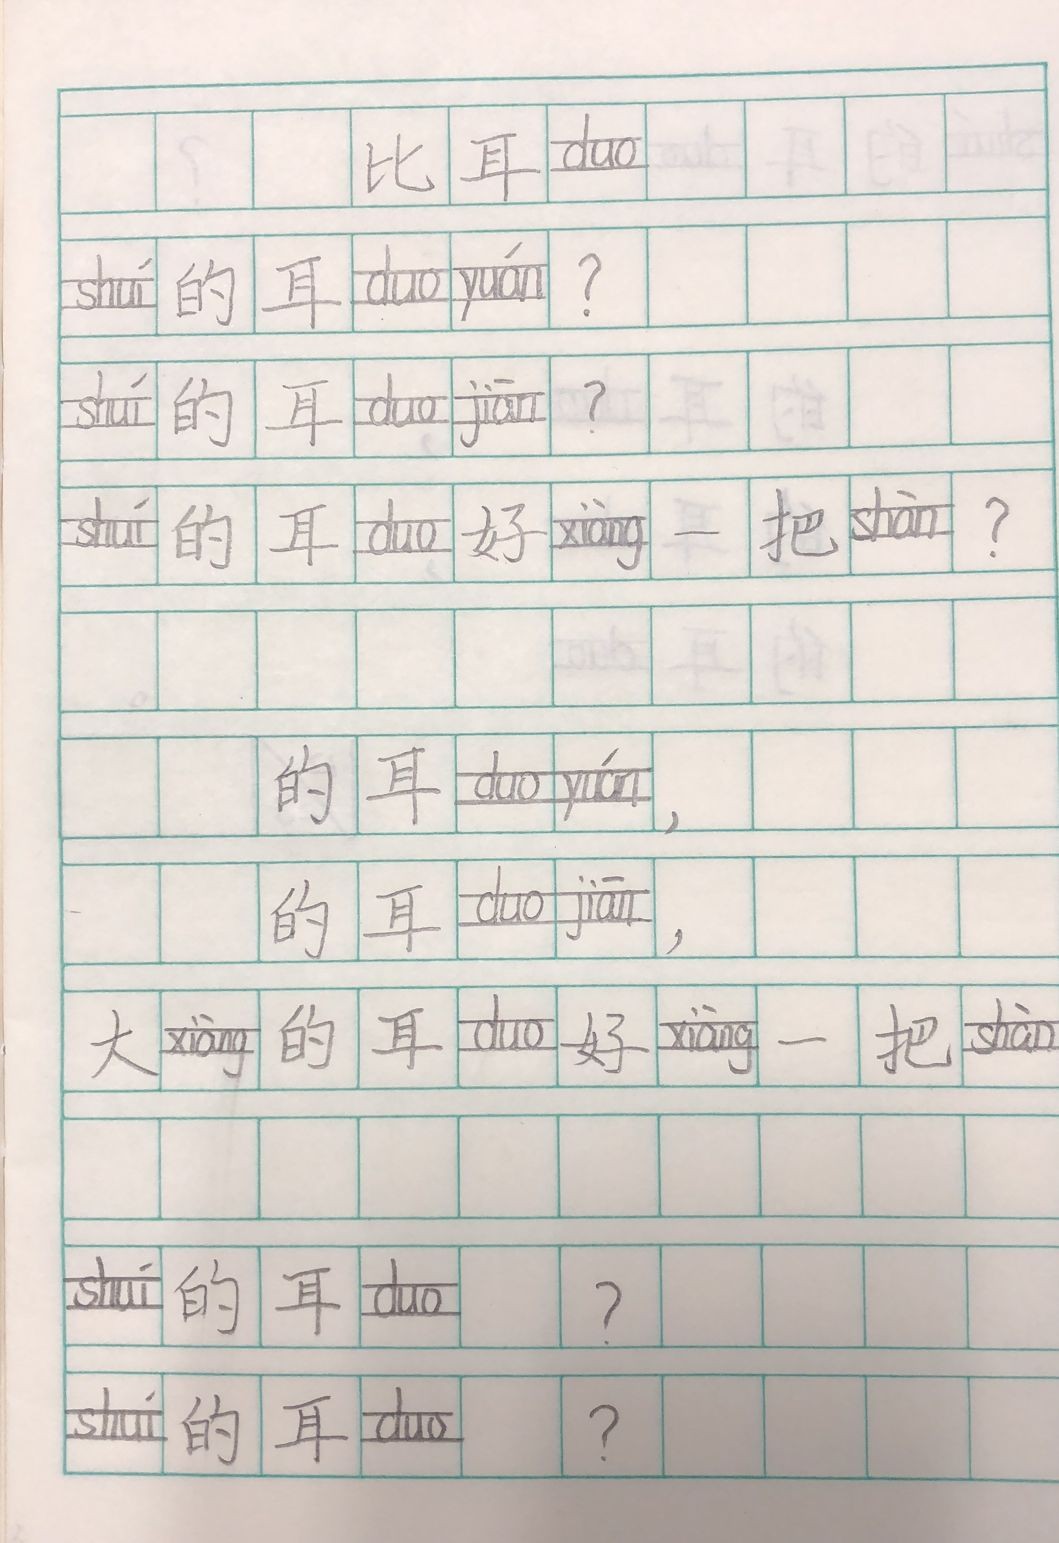 比耳duo
shuí的耳duo yuán？
shuí的耳duo jiān？
shuí的耳duo好xiàng一把shàn？
的耳duo yuán，
的耳duo jiān，
大xiàng的耳duo好xiàng一把shàn
shuí的耳duo ？
shuí的耳duo ？